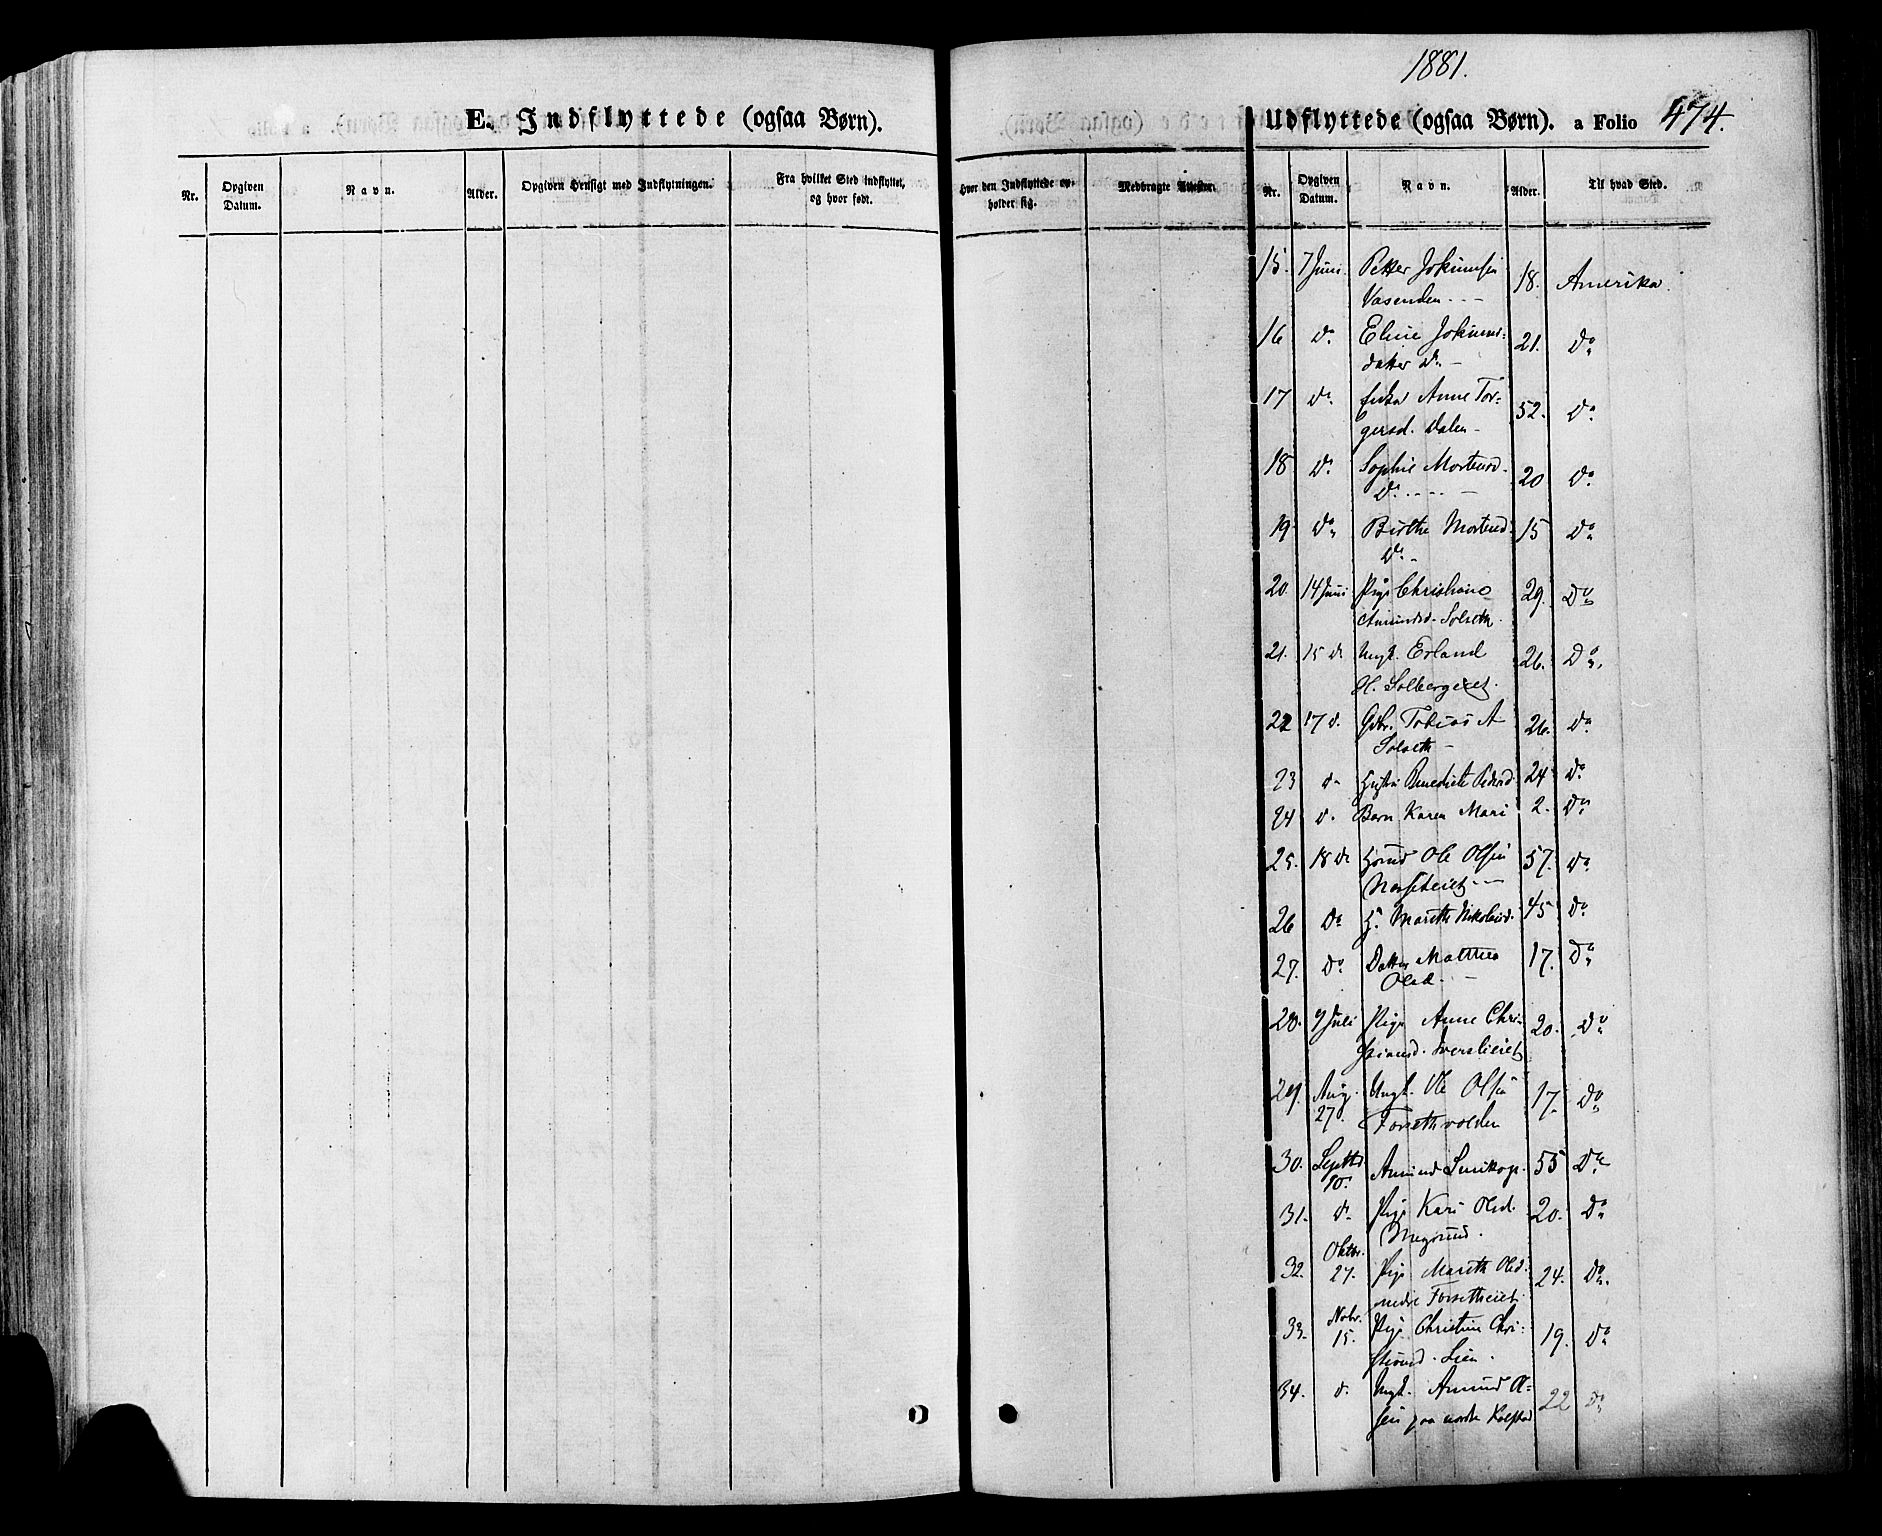 1881.
E. Indflyttede (ogsaa Børn).
Udflyttede (ogsaa Børn). a Folio 474.
Nr. Opgiven Datum. Navn. Alder. Opgiven Hensigt med Indflytningen. Fra hvilket Sted indflyttet, og hvor født. Hvor den Indflyttede opholder sig. Medbragte Attester. Nr. Opgiven Datum. Navn. Alder. Til hvad Sted.
15. 7 Juni. Petter Jokumsen 18. Amerika.
Vasenden - - -
16 Do Eline Jokums- 21. Do
datter Do -
17 Do Enke Anne Tor- 52. Do
gersd. Dalen -
18 Do Sophie Mortensd. 20 Do
Do - - - -
19 Do Birthe Mortensd. 15 Do
Do -
20. 14 Juni Pige Christiane 29. Do
Amundsd. Solseth.
21. 15 Do Ungk. Erland 26. Do
H. Solbergeiet.
22 17 d. Gbr. Tobias A 26. Do
Solseth -
23 d- Hustru Benedicte Pedersd 24 Do
24 d. Barn Karen Mari 2. Do
25. 18 Do Ole Olsen 57. Do
26 Do H. Marethe Nikolaisd. 45 Do
27. Do Datter 17. Do
Olsd. -
28. 9 Juli Pige Anne Chri- 20. Do
stiansd.
29. Aug. Ungk. Ole Olsen 17. Do
27. Forsethvolden
30. Septbr Amund 55 Do
10.
31. d- Pige Kari Olsd. 20. Do
32. Oktbr. Pige Mareth Olsd. 24. Do
27. nedre Forsetheiet
33. Nobr. Pige Christine Chri- 19. Do
15. stiansd. Lien.
34. d. Ungk. Amund Ol- 22 Do
sen paa nordre Kolstad